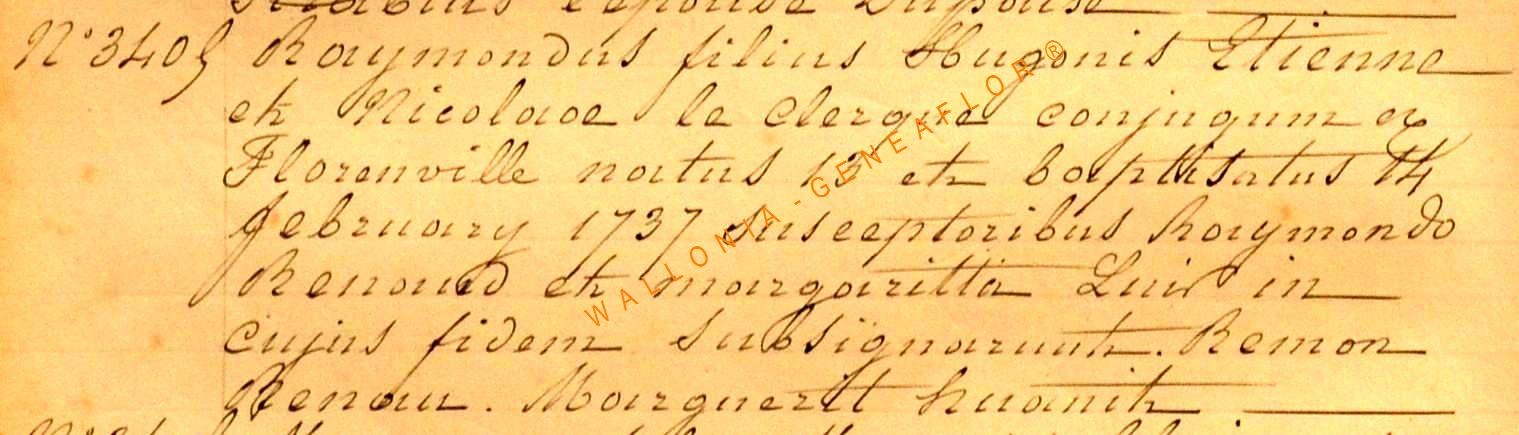 N° 3405 Raymondus filius Hugonis Etienne
et Nicolaae le Clerque conjugum ex
Florenville natus 13 et baptisatus 14
february 1737 susceptoribus Raymondo
Renaud et margaritta in
cujus fidem subsignarunt. Remon
Renau. Marguerit
WALLONIA-GENEAFLOR®